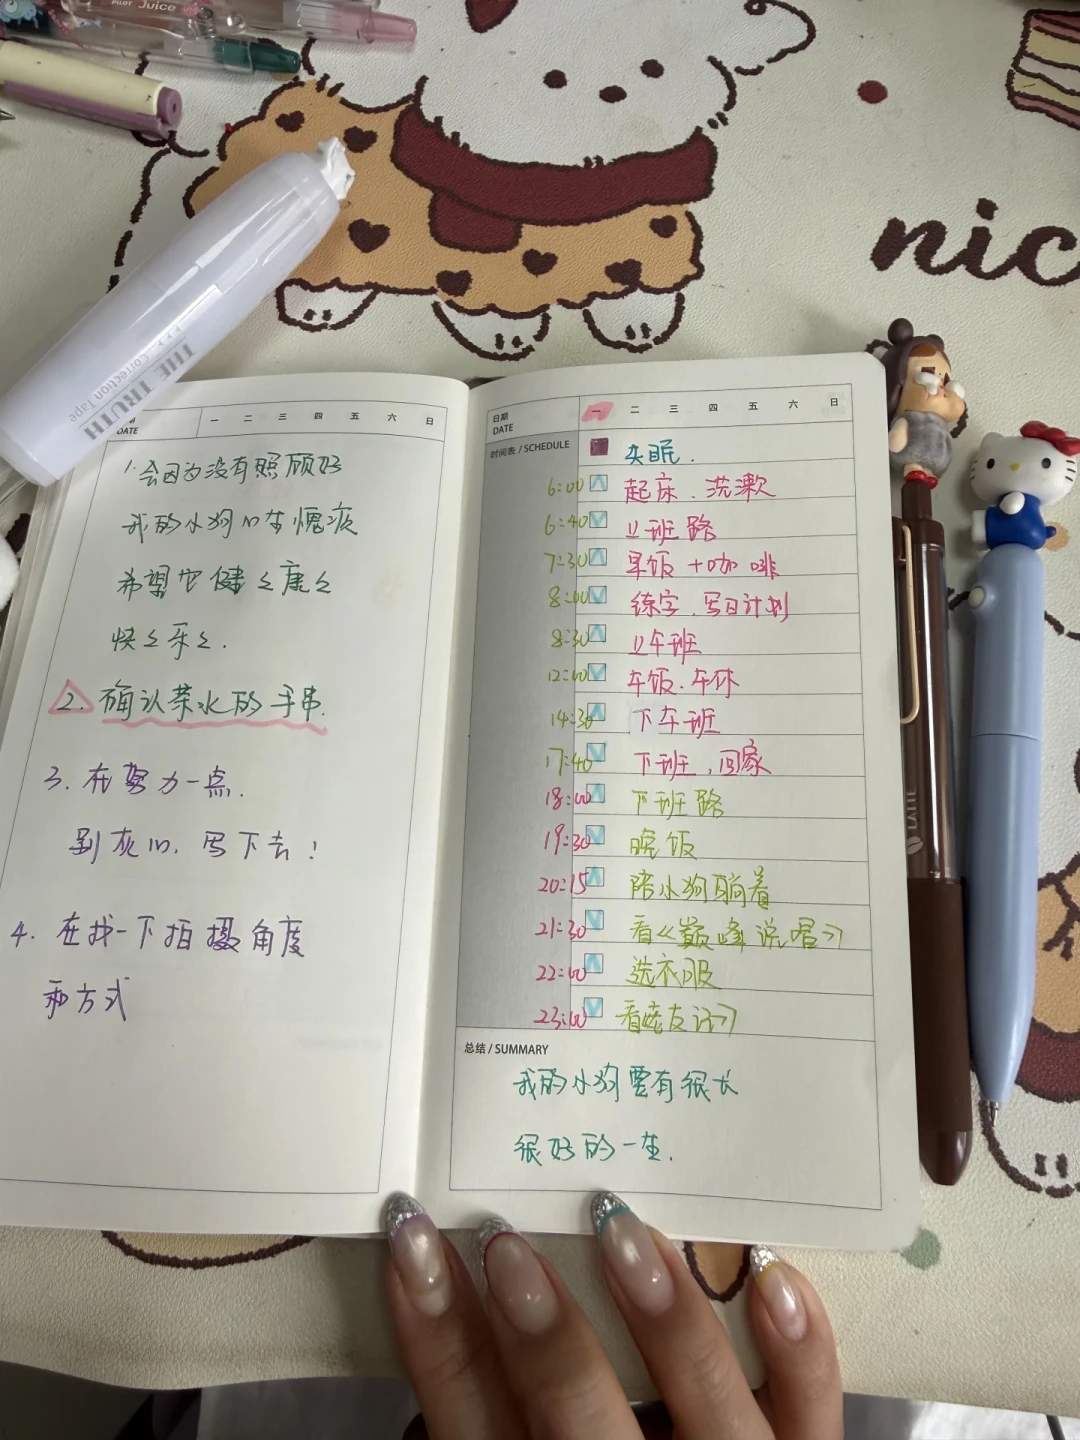 Juice
nic
THE TRUTH
Correction Tape
DATE
一 二 三 四 五 六 日
1.会因为没有照顾好
我的小狗心生愧疚
希望它健々康々
快々乐々.
2. 确认茶水的手串.
3. 在努力一点.
别灰心. 写下去！
4. 在找一下拍摄角度
和方式
日期
DATE
一 二 三 四 五 六 日
时间表 / SCHEDULE
失眠.
6:00 起床. 洗漱
6:40 上班路
7:30 早饭+咖啡
8:00 练字. 写日计划
8:30 上午班
12:00 午饭. 午休
14:30 下午班
17:40 下班, 回家
18:00 下班路
19:30 晚饭
20:15 陪小狗躺着
21:30 看《巅峰说唱》
22:00 洗衣服
23:00
总结 / SUMMARY
我的小狗要有很长
很好的一生.
LATTE